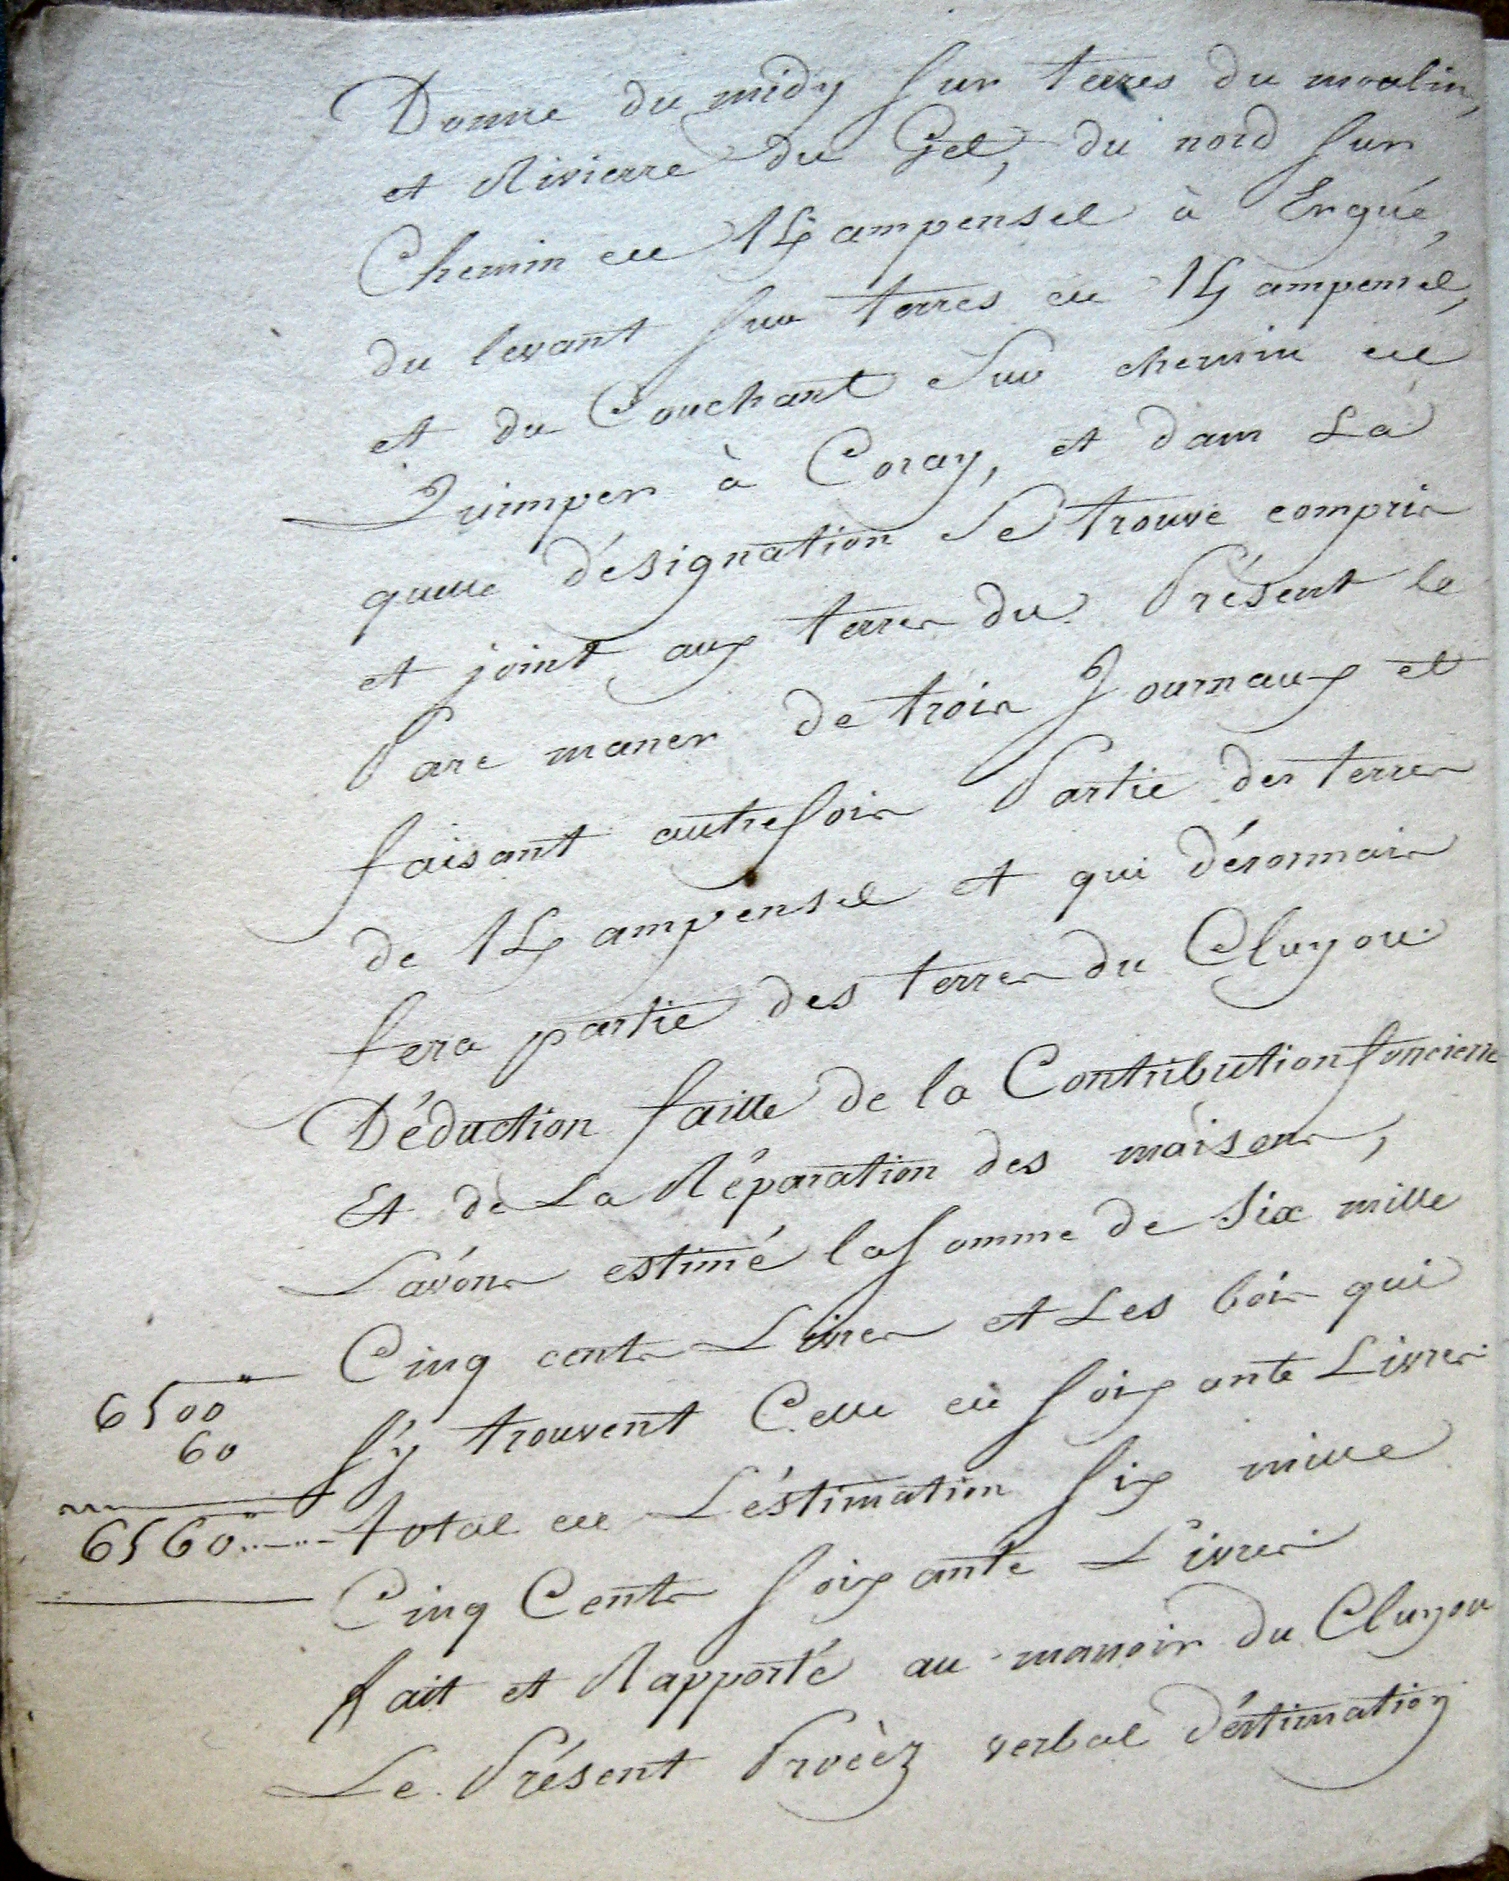 Donne du midy sur terres du moulin,
et Rivierre du Jet, du nord sur
Chemin de Kampensel à Ergué,
du levant sur terres de Kampensel,
et du Couchant sur chemin de
Quimper à Coray, et dans La
quelle désignation se trouve compris
et joint aux terres du Présent le
Parc maner de trois Journaux et
faisant autrefois Partie des terres
de Kampensel et qui désormais
fera partie des terres du Cluyou
Déduction faitte de la Contribution fonciere
Et de La Réparation des maisons,
L'avons estimé la somme de Six mille
Cinq cents Livres et Les bois qui
6500"
s'y trouvent Celle de soixante Livres
60
total de L'éstimation six mille
6560"
Cinq Cents soixante Livres
fait et Rapporté au manoir du Cluyou
Le Présent Procèz verbal d'éstimation